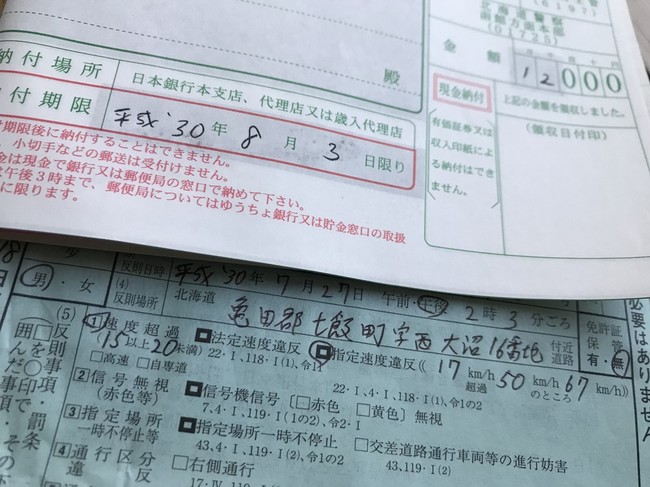 (6197)
北海道警察
函館方面本部
(01725)
殿
金 額
12000
納付場所
日本銀行本支店、代理店又は歳入代理店
付期限
平成'30年8月3日限り
現金納付
上記の金額を領収しました。
(領収日付印)
有価証券又は
収入印紙によ
る納付はでき
ません。
期限後に納付することはできません。
小切手などの郵送は受付けません。
金は現金で銀行又は郵便局の窓口で納めて下さい。
は午後3時まで、郵便局についてはゆうちょ銀行又は貯金窓口の取扱
に限ります。
男・女
(4)
反則日時
平成'30年7月27日 午前・午後2時3分ごろ
反則場所
北海道
亀田郡七飯町字西大沼16番地
付近
道路
免許証
保管
有・無
必要はありません
(5)
反則事項・罰条
囲んだ
□印
○印
1 速度超過
(15以上20未満)
□高速 □自専道
法定速度違反
22・I、118・I(1)、令11
指定速度違反((17km/h超過50km/hのところ67km/h))
22・I、4・I、118・I(1)、令1の2
2 信号無視
(赤色等)
信号機信号〔□赤色 □黄色〕無視
7、4・I、119・I(1の2)、令2・I
3 指定場所
一時不停止等
指定場所一時不停止
43、4・I、119・I(2)、令1の2
□交差道路通行車両等の進行妨害
43、119・I(2)
4 通行区分
違反
□右側通行
17・IV、119・I(2の2)